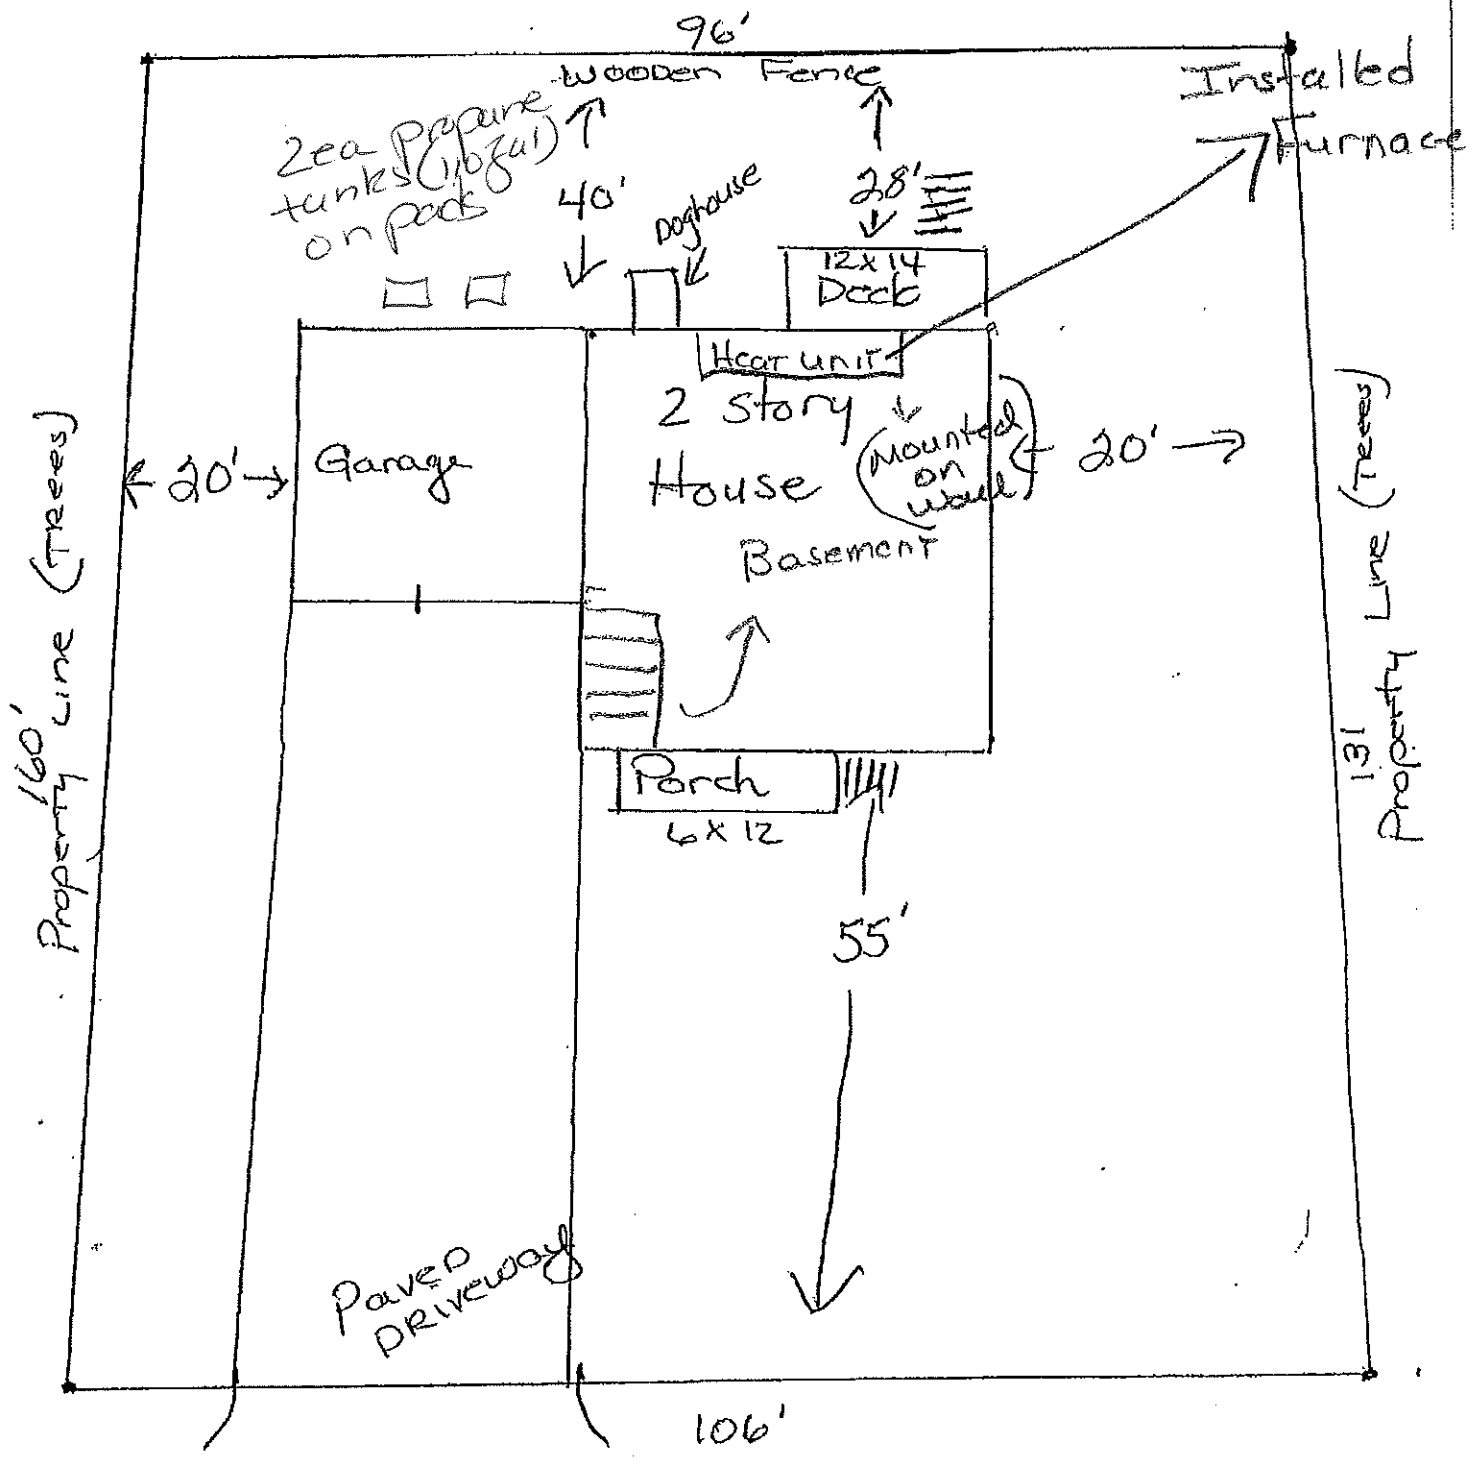 96'
Wooden Fence
Installed
Furnace
2ea propane
tanks (110gal)
on pads
40'
Doghouse
28'
12 x 14
Deck
Heat unit
2 Story
House
(Mounted
on
wall)
Basement
Garage
20'
20'
Property Line (Trees)
160'
Property Line (Trees)
131
Porch
6 x 12
55'
Paved
Driveway
106'